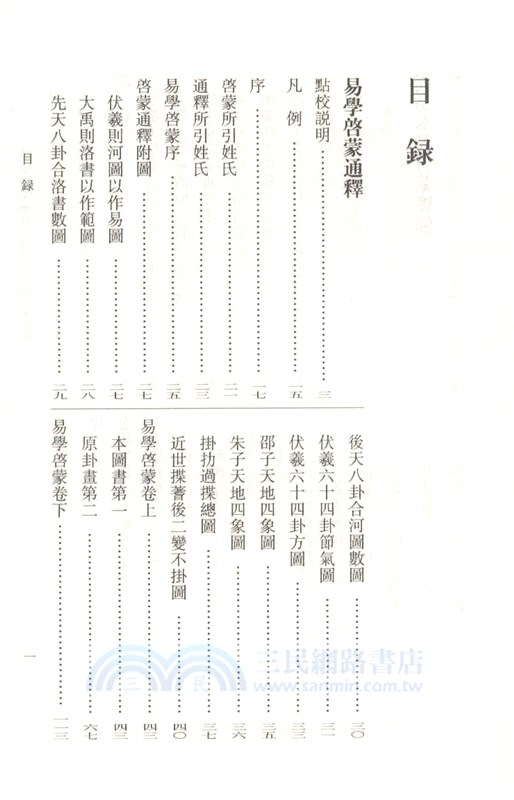 目録
易學啓蒙通釋
點校説明…………三
凡例…………一五
序…………一七
啓蒙所引姓氏…………二一
通釋所引姓氏…………二三
易學啓蒙序…………二五
啓蒙通釋附圖…………二七
伏羲則河圖以作易圖…………二七
大禹則洛書以作範圖…………二八
先天八卦合洛書數圖…………二九
後天八卦合河圖數圖…………三〇
伏羲六十四卦節氣圖…………三一
伏羲六十四卦方圖…………三三
邵子天地四象圖…………三五
朱子天地四象圖…………三六
掛扐過揲總圖…………三七
近世揲蓍後二變不掛圖…………四〇
易學啓蒙卷上…………四三
本圖書第一…………四三
原卦畫第二…………六七
易學啓蒙卷下…………一一三
目録
一
三民網路書店
www.sanmin.com.tw
三
民